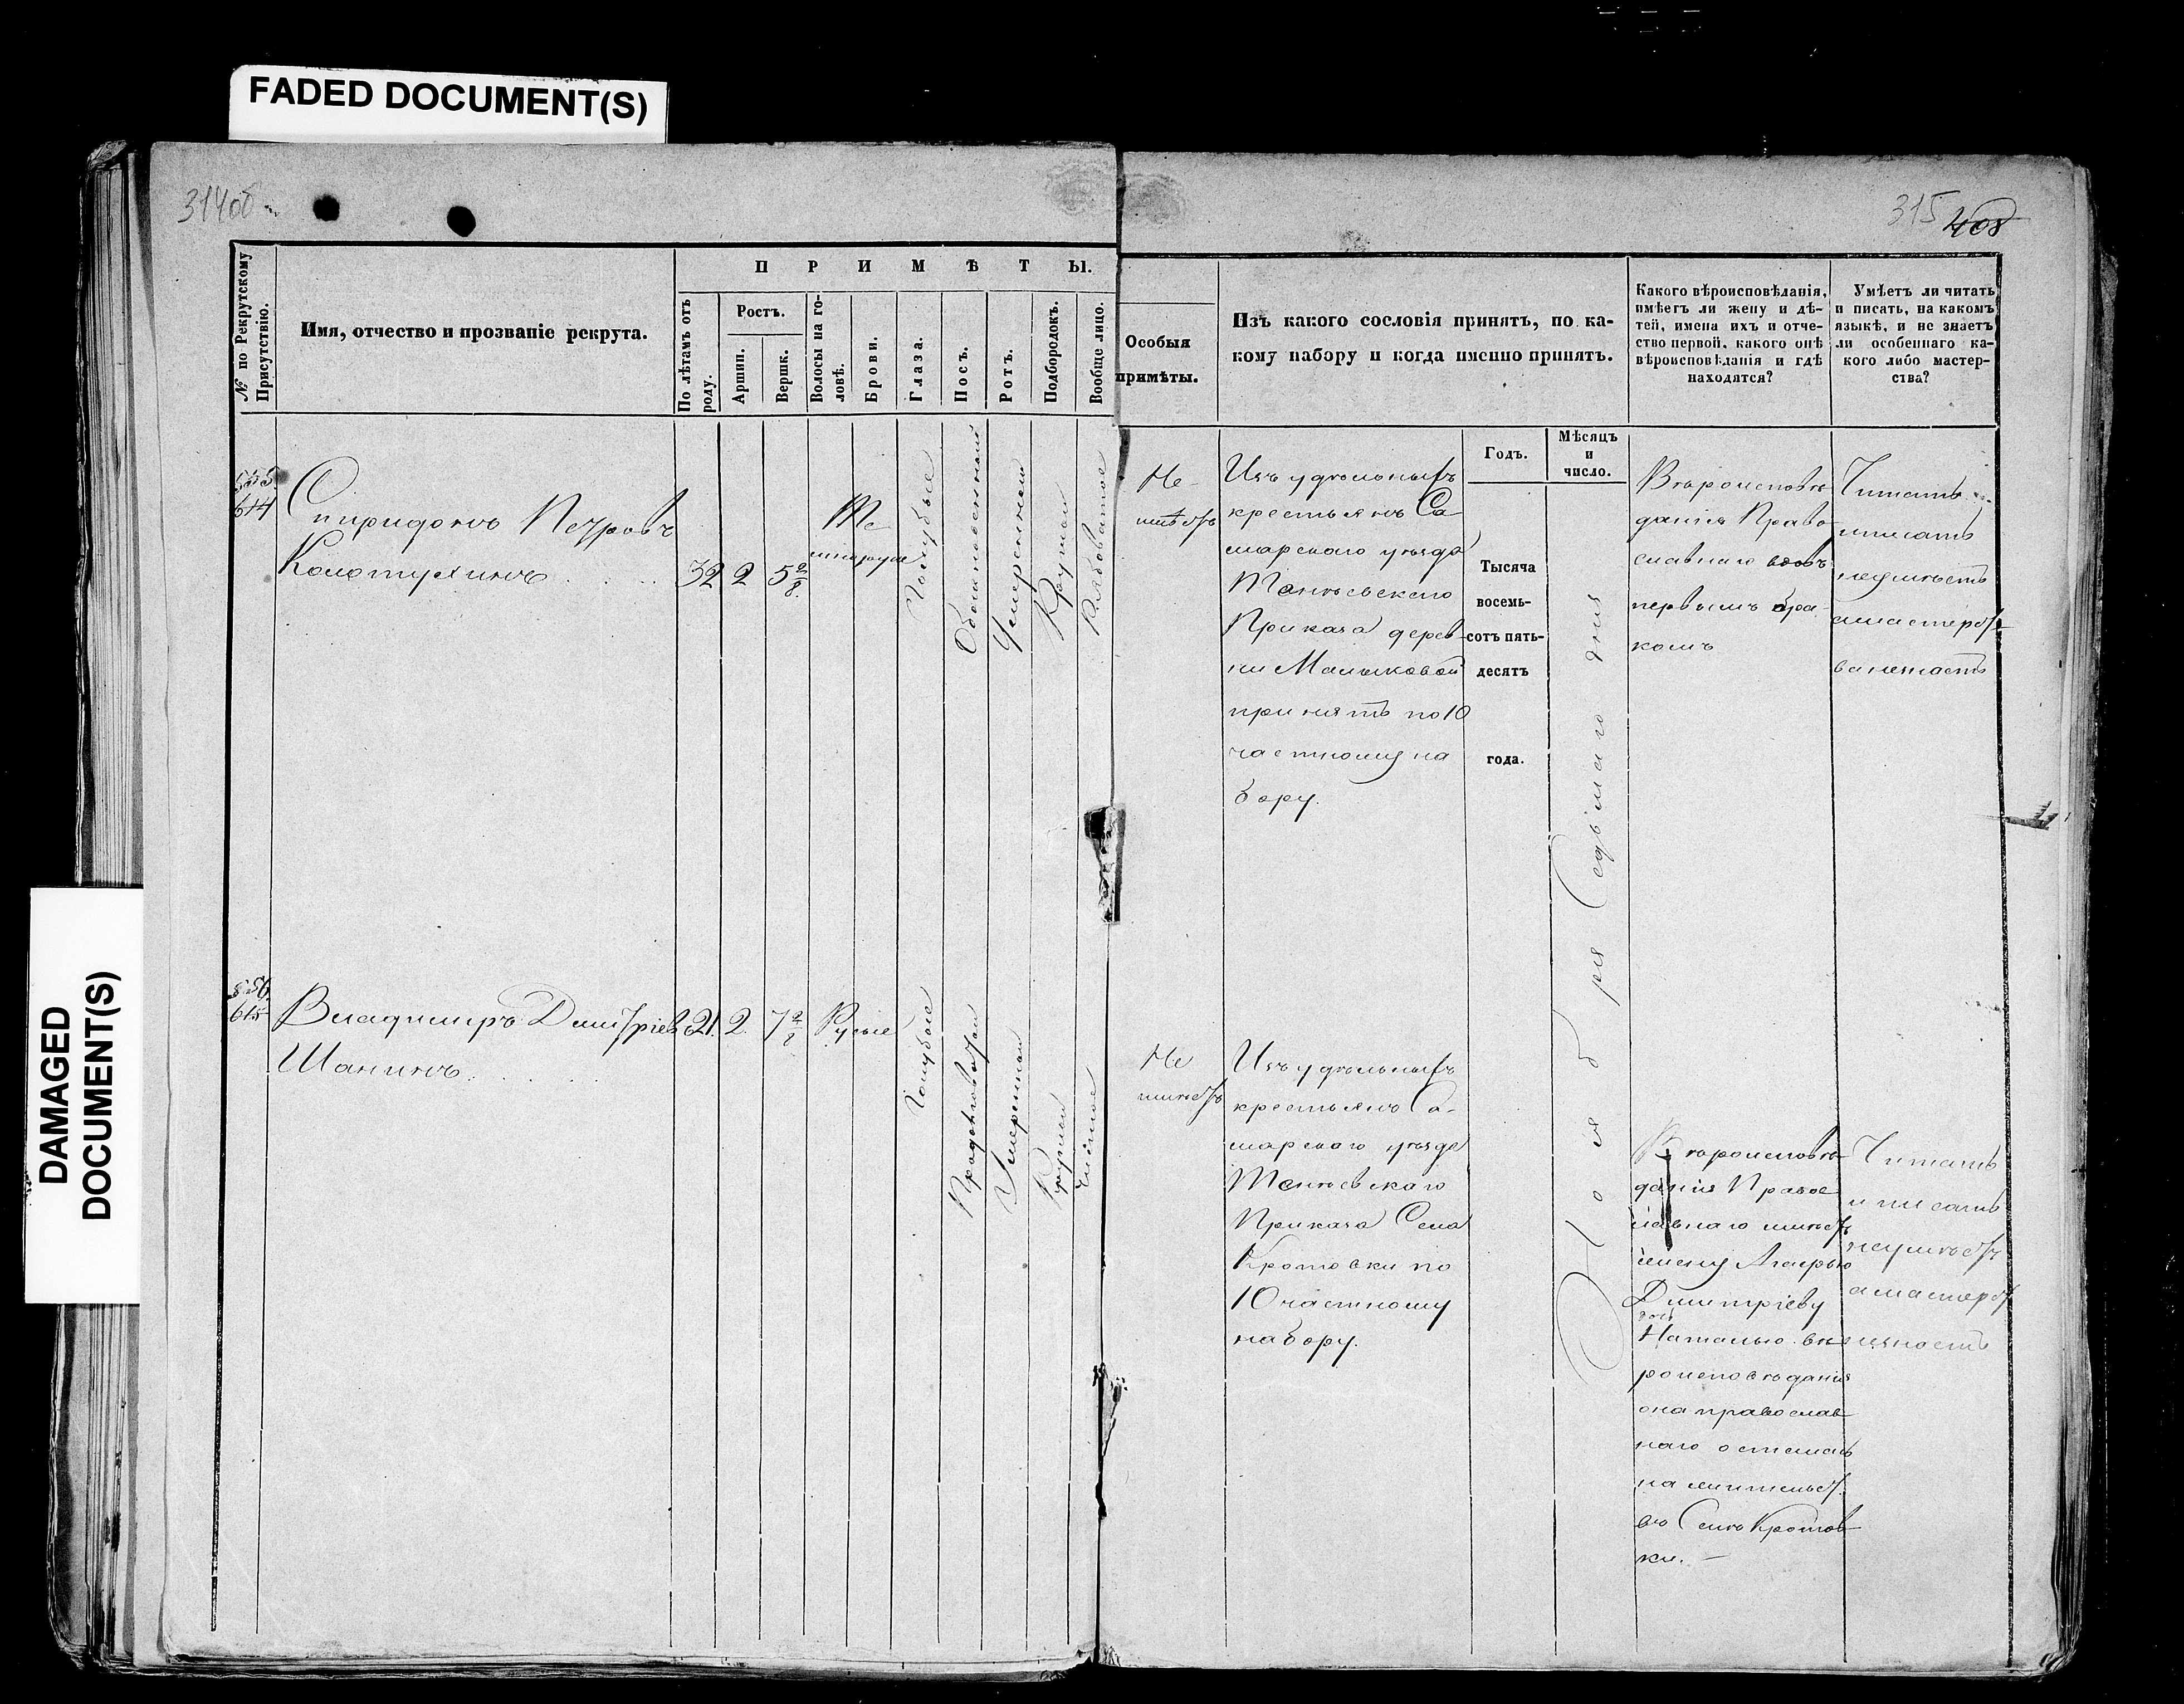 FADED DOCUMENT(S)
DAMAGED
DOCUMENT(S)
314об
315
408
№ по Рекрутскому
Присутствію.
Имя, отчество и прозваніе рекрута.
П Р И М Ѣ Т Ы.
По лѣтамъ отъ
роду.
Ростъ.
Аршин.
Вершк.
Волосы на го-
ловѣ.
Брови.
Глаза.
Носъ.
Ротъ.
Подбородокъ.
Вообще лицо.
Особыя
примѣты.
Изъ какого сословія принятъ, по ка-
кому набору и когда именно принятъ.
Какого вѣроисповѣданія,
имѣетъ ли жену и дѣ-
тей, имена ихъ и отче-
ство первой, какого онѣ
вѣроисповѣданія и гдѣ
находятся?
Умѣетъ ли читать
и писать, на какомъ
языкѣ, и не знаетъ
ли особеннаго ка-
кого либо мастер-
ства?
Годъ.
Мѣсяцъ
и
число.
Тысяча
восемь-
сотъ пять-
десятъ
года.
Ноября Седьмаго дня
555
614
Спиридонъ Петровъ
Колотушкинъ
32
2
5 2/8
Те
мнорусые
Голубые
Обыкновенный
Умеренный
Круглый
Рябоватое
Не
имѣетъ
Изъ удѣльныхъ
крестьянъ Са
марскаго уѣзда
Тенѣевскаго
Приказа дерев-
ни Малыковой
принятъ по 10
частному на
бору.
Вѣроисповѣ
данія Право
славнаго вдовъ
первымъ бра-
комъ
Читать
писать
неумѣетъ
амастерст
ва незнаетъ
556
615
Владимиръ Дмитріев
Шанинъ
21
2
7 2/8
Русые
Голубые
Продолговатой
Умеренный
Круглой
Чистое
Не
имѣетъ
Изъ удѣльныхъ
крестьянъ Са-
марскаго уѣзда
Тенѣевскаго
Приказа Села
Кротовки по
10 частному
набору.
Вѣроисповѣ-
данія Правос
лавнаго имѣетъ
жену
Дмитріеву
дочь
Наталью вѣ
роисповѣданія
она православ
наго осталась
на жительст.
въ Селѣ Кротов
ки. —
Читать
и писать
неумѣетъ
амастерст
незнаетъ